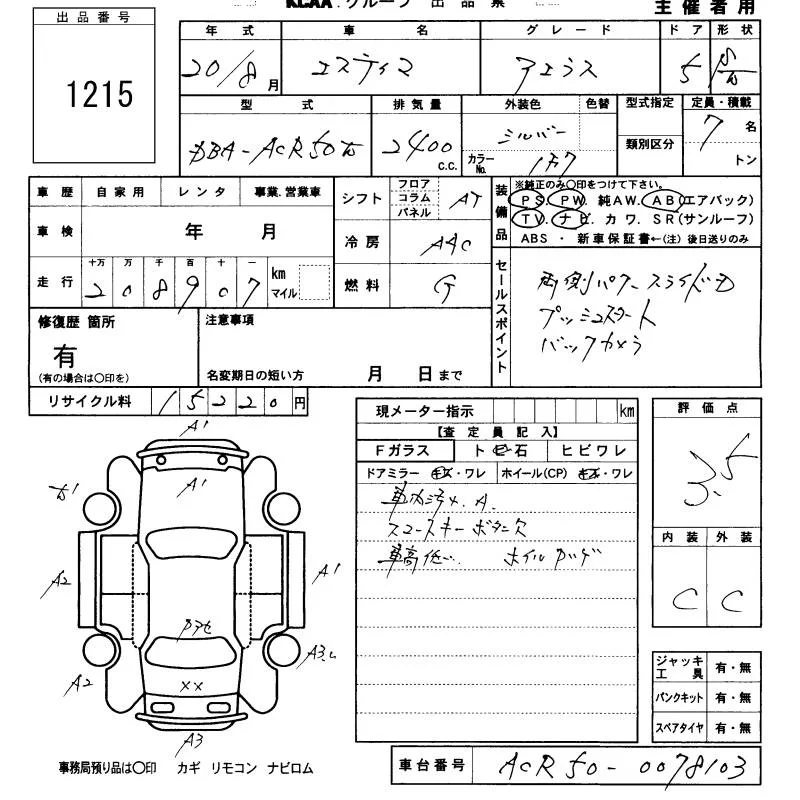 KCAA グループ 出品票
主催者用
出品番号
1215
年式 車名 グレード ドア 形状
20/8月 エスティマ アエラス 5
型式 排気量 外装色 色替 型式指定 定員・積載
DBA-ACR50W 2400 c.c. シルバー 7名
カラーNo. 1F7 類別区分 トン
車歴 自家用 レンタ 事業.営業車
車検 年 月
走行 十万 万 千 百 十 一
208907 km マイル
シフト フロア コラム パネル AT
冷房 AAC
燃料 G
装備品
※純正のみ〇印をつけて下さい。
PS. PW. 純AW. AB(エアバック)
TV. ナビ. カワ. SR(サンルーフ)
ABS ・ 新車保証書←(注) 後日送りのみ
セールスポイント
両側パワースライドD
プッシュスタート
バックカメラ
修復歴 箇所
有
(有の場合は〇印を)
注意事項
名変期日の短い方 月 日まで
リサイクル料 15220円
現メーター指示 km
【査定員記入】
Fガラス トビ石 ヒビワレ
ドアミラー キズ・ワレ ホイール(CP) キズ・ワレ
車内汚れ.A.
スマートキーボタン欠
車高低い. ホイルガリ
評価点
3.5
内装 外装
C C
A1
A1
A1
A2
A1
A2
A3
××
A3
ジャッキ工具 有・無
パンクキット 有・無
スペアタイヤ 有・無
事務局預り品は〇印 カギ リモコン ナビロム
車台番号 ACR50-0078103